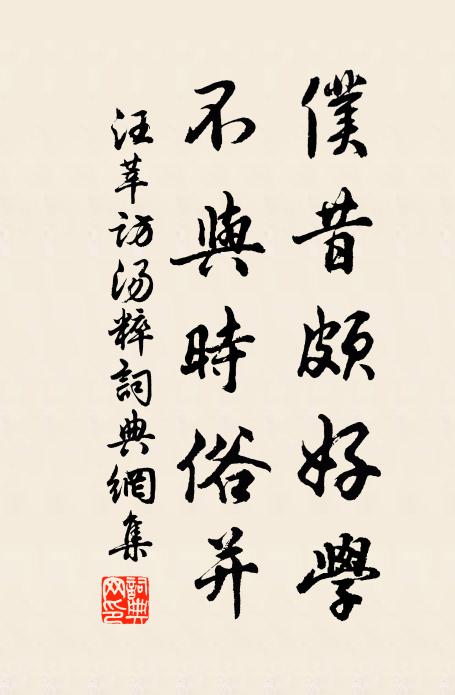 僕昔頗好學
不與時俗并
汪莘訪湯粹詞典網集
詞典
网印